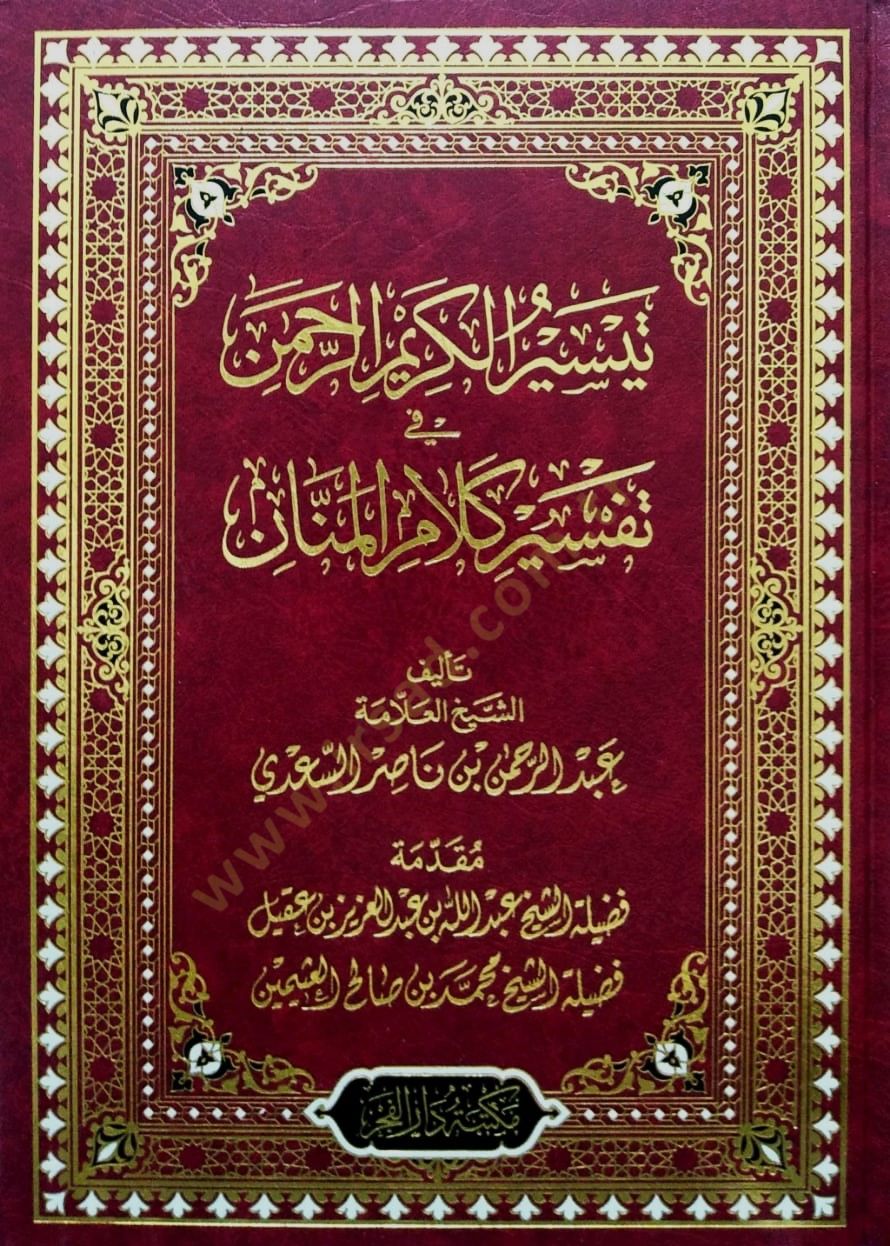 تَيْسِيرُ الْكَرِيمِ الرَّحْمَنِ
فِي
تَفْسِيرِ كَلَامِ الْمَنَّانِ
تَأليف
الشَّيخ العَلَّامَة
عَبْد الرَّحمن بْن نَاصِر السَّعْدي
مُقَدّمَة
فضيلة الشيخ عبد الله بن عبد العزيز بن عقيل
فضيلة الشيخ محمد بن صالح العثيمين
مكتبة دار الفجر